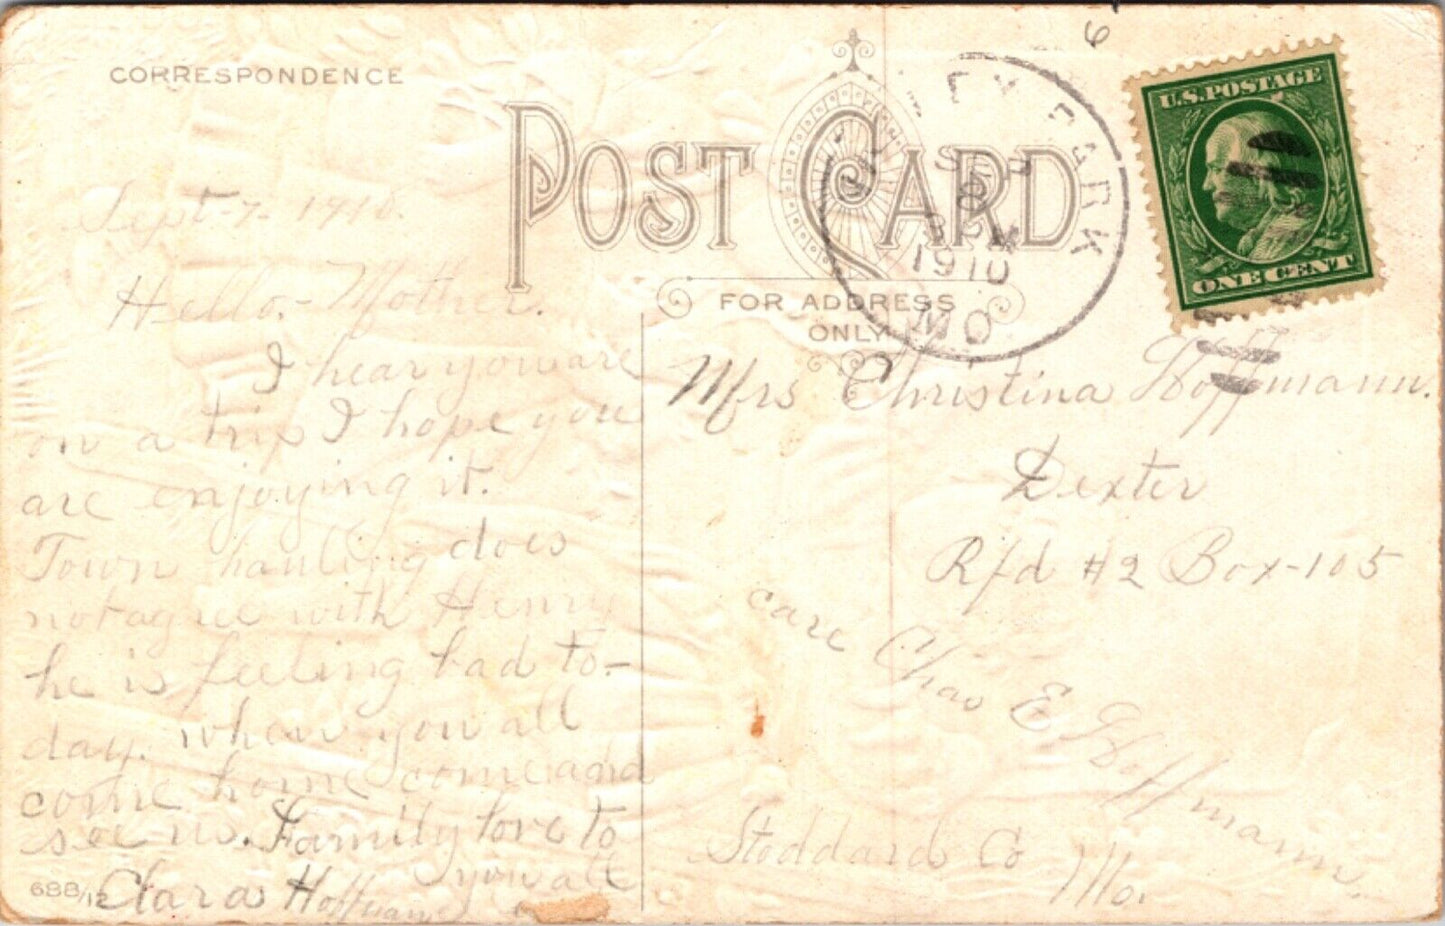 CORRESPONDENCE
POST CARD
FOR ADDRESS
ONLY
PARK
SEP
8
1910
MO
U.S. POSTAGE
ONE CENT
Sept-7-1910.
Hello,- Mother.
I hear you are
on a trip I hope you
are enjoying it.
Town hauling does
not agree with Henry
he is feeling bad to-
day. when you all
come home come and
see us. Family love to
you all
Clara Hoffmann
688/12
Mrs Christina Hoffmann.
Dexter
Rfd #2 Box-105
care Chas E Hoffmann.
Stoddard Co
Mo.